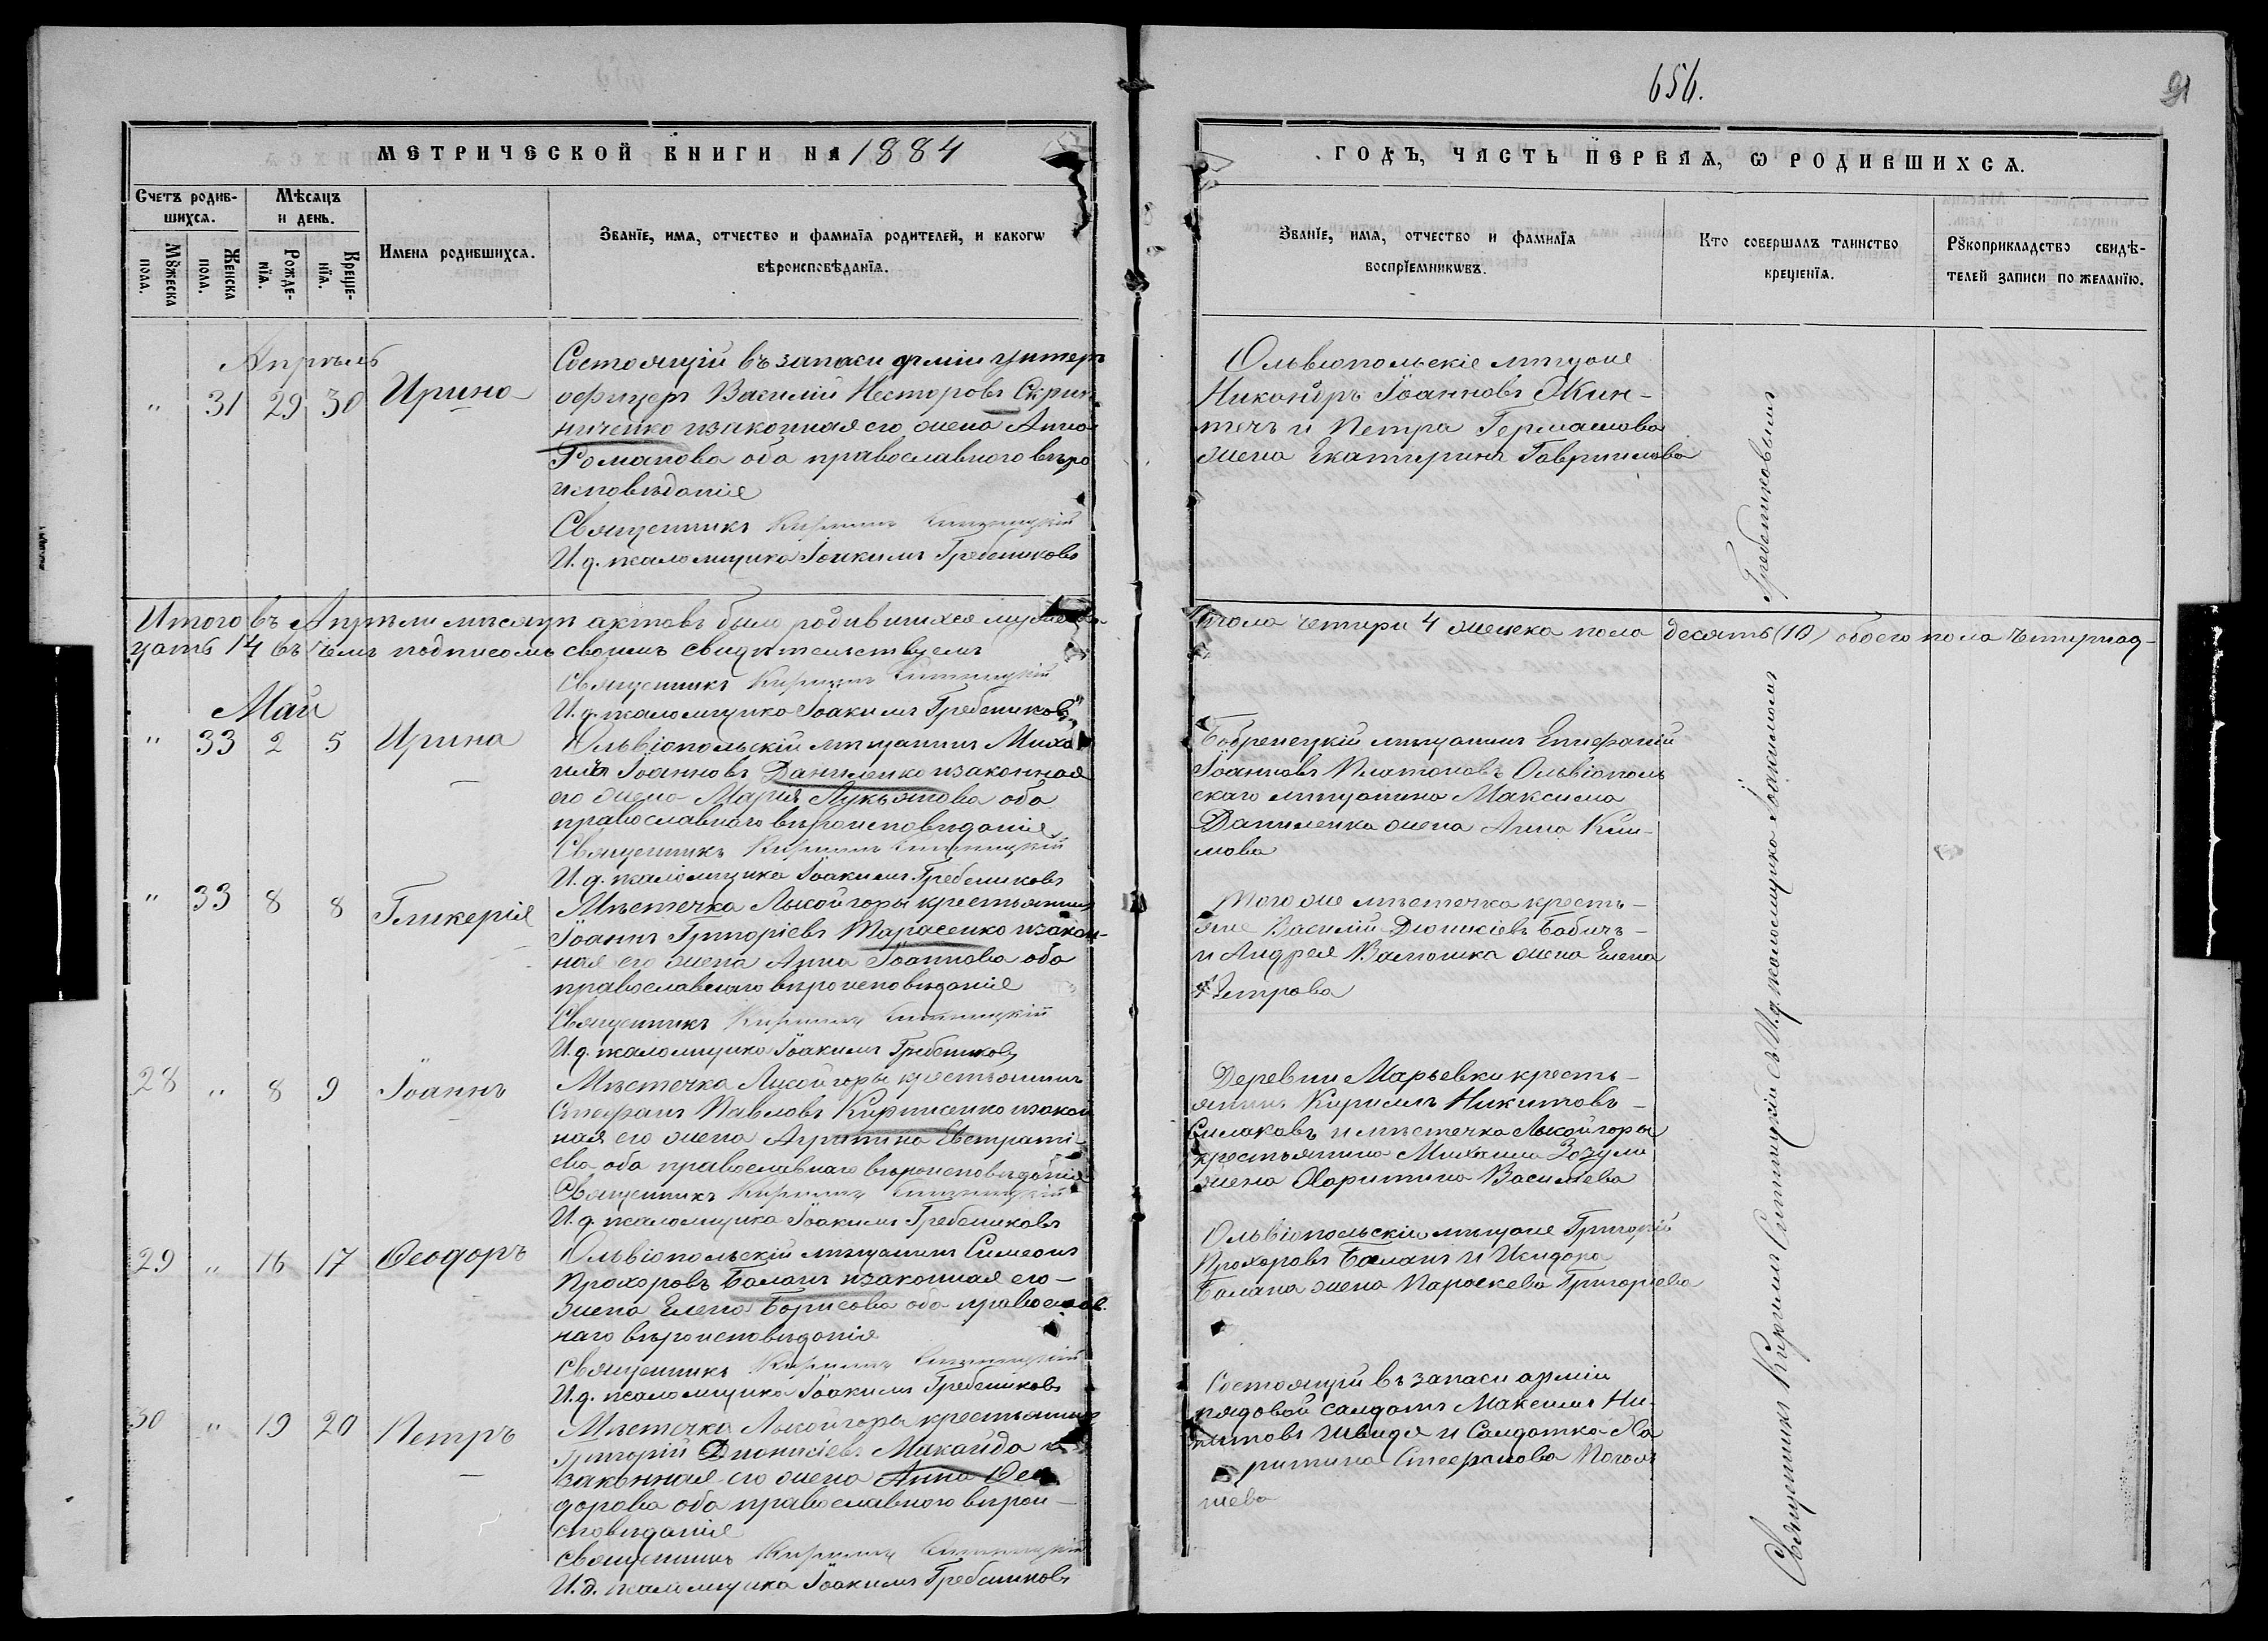 656.
91
МЕТРИЧЕСКОЙ КНИГИ НА 1884
ГОДЪ, ЧАСТЬ ПЕРВАЯ, Ѡ РОДИВШИХСѦ.
Счетъ родив-
шихсѧ.
Мѣсѧцъ
и день.
Мꙋжеска
пола.
Женска
пола.
Рожде-
нїѧ.
Креще-
нїѧ.
Имена родившихсѧ.
Званїе, имѧ, отчество и фамилїѧ родителей, и какогѡ
вѣроисповѣданїѧ.
Званїе, имѧ, отчество и фамилїѧ
воспрїемникѡвъ.
Кто совершалъ таинство
крещенїѧ.
Рꙋкоприкладство свидѣ-
телей записи по желанїю.
Апрѣль
" 31 29 30 Ирина
Состоящій въ запаси арміи унтеръ
офицеръ Василій Несторовъ Скрин-
ниченко и законная его жена Анна
Романова оба православного вѣро
исповѣданіе
Священникъ Кириллъ
И. д. псаломщика Іоакимъ Гребениковъ
Ольвіопольскіе мѣщане
Никаноръ Іоанновъ
и Петра Гермашова
жена Екатерина Гавриилова
Итого въ Апрѣли мѣсяцѣ актовъ было родившихся мужеска
пола четири 4 женска пола десять (10) обоего пола четирнад-
цать 14 въ чемъ подписомъ своимъ свидѣтельствуемъ
Священникъ Кириллъ
И. д. псаломщика Іоакимъ Гребениковъ
Май
" 33 2 5 Ирина
Ольвіопольскій мѣщанинъ Миха
илъ Іоанновъ Даниленко и законная
его жена Марія Лукьянова оба
православного вѣроисповѣданіе
Священникъ Кириллъ
И. д. псаломщика Іоакимъ Гребениковъ
Бобринецкій мѣщанинъ Епифаній
Іоанновъ Платоновъ Ольвіополь
скаго мѣщанина Максима
Даниленка жена Анна Кли-
мова
" 33 8 8 Гликерія
Мѣстечка Лысой горы крестьянинъ
Іоаннъ Григоріевъ Тарасенко и закон-
ная его жена Анна Іоаннова оба
православного вѣроисповѣданіе
Священникъ Кириллъ
И. д. псаломщика Іоакимъ Гребениковъ
Того же мѣстечка кресть-
яне Василій Діонисіевъ Бабичъ
и Андрея жена Елена
Петрова
28 " 8 9 Іоаннъ
Мѣстечка Лысой горы крестьянинъ
Стефанъ Павловъ Кириленко и закон
ная его жена Агрипина Евстрати-
ева оба православнаго вѣроисповѣданія
Священникъ Кириллъ
И. д. псаломщика Іоакимъ Гребениковъ
Деревни Марьевки кресть-
янинъ Кириллъ Никитовъ
и мѣстечка Лысой горы
крестьянина Михаила Зозули
жена Харитина Васильева
29 " 16 17 Ѳеодоръ
Ольвіопольскій мѣщанинъ Симеонъ
Прохоровъ Баланъ и законная его
жена Елена Борисова оба православ
наго вѣроисповѣданія
Священникъ Кириллъ
И. д. псаломщика Іоакимъ Гребениковъ
Ольвіопольскіи мѣщане Григорій
Прохоровъ Баланъ и Исидора
Балана жена Параскева Григоріева
30 " 19 20 Петръ
Мѣстечка Лысой горы крестьянинъ
Григорій Діонисіевъ Макайда и
законная его жена Анна Ѳео
дорова оба православного вѣрои-
сповѣданіе
Священникъ Кириллъ
И. д. псаломщика Іоакимъ Гребениковъ
Состоящій въ запаси арміи
рядовой салдатъ Максимъ Ни-
китовъ Швидя и Салдатка Ха
ритина Стефанова
Священникъ Кириллъ съ И. д. псаломщика Іоакимомъ Гребениковымъ